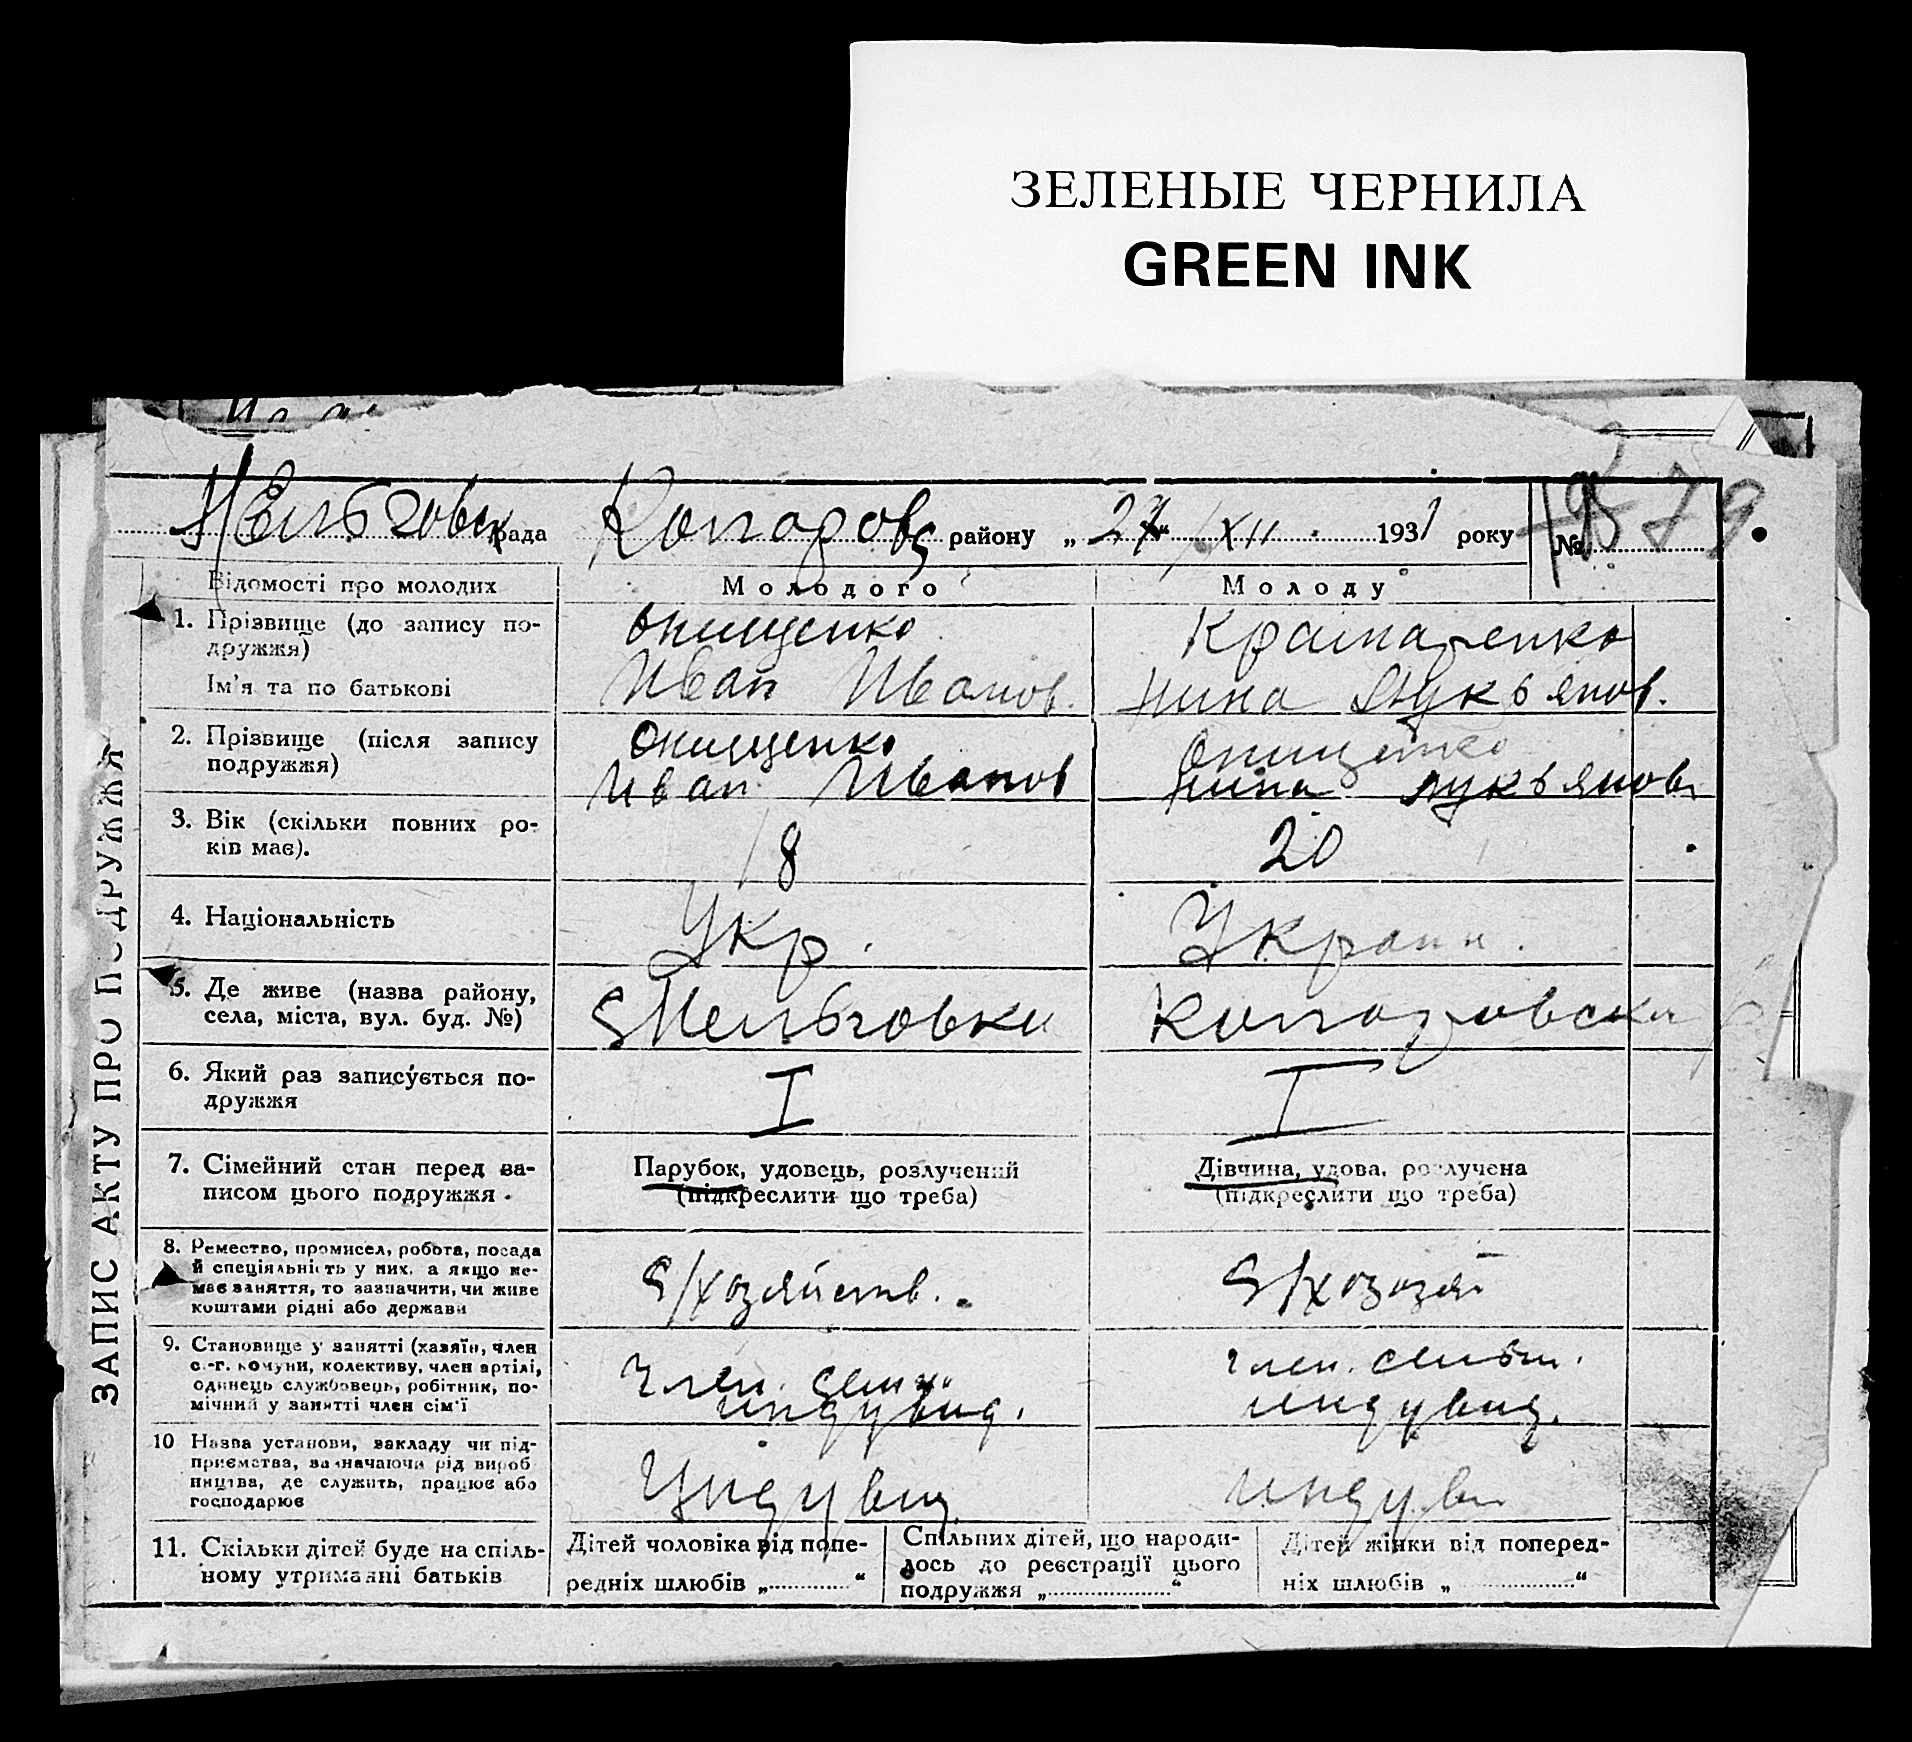 ЗЕЛЕНЫЕ ЧЕРНИЛА
GREEN INK
рада района „ 24 “ / XII 1931 року № 79
Відомості про молодих Молодого Молоду
1. Прізвище (до запису по-
дружжя)
Онищенко Крамаренко
Ім'я та по батькові
Иван Иванов. Нина Лукъянов.
2. Прізвище (після запису
подружжя)
Онищенко Онищенко
Иван Иванов Нина Лукъянов
3. Вік (скільки повних ро-
ків має).
18 20
4. Національність
Укр. Украин.
5. Де живе (назва району,
села, міста, вул. буд. №)
6. Який раз записується по-
дружжя
I I
7. Сімейний стан перед за-
писом цього подружжя
Парубок, удовець, розлучений
(підкреслити що треба)
Дівчина, удова, розлучена
(підкреслити що треба)
8. Ремество, промисел, робота, посада
й спеціяльність у них, а якщо не-
має заняття, то зазначити, чи живе
коштами рідні або держави
S/хозяйств. S/хозозяй
9. Становище у занятті (хазяїн, член
с.-г. комуни, колективу, член артілі,
одинець службовець, робітник, по-
мічний у занятті член сім'ї
член. семьи член. семьи.
индувид. индувид.
10 Назва установи, закладу чи під-
приємства, зазначаючи рід вироб
ництва, де служить, працює або
господарює
Индувид индуви
11. Скільки дітей буде на спіль-
ному утриманні батьків
Дітей чоловіка від попе-
редніх шлюбів „ “
Спільних дітей, що народи-
лось до реєстрації цього
подружжя „ “
Дітей жінки від поперед-
ніх шлюбів „ “
ЗАПИС АКТУ ПРО ПОДРУЖЖЯ